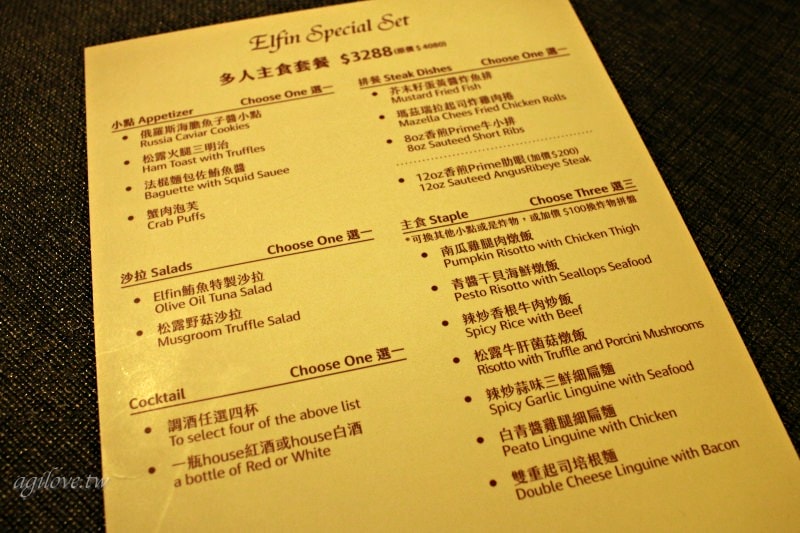 Elfin Special Set
多人主食套餐 $3288(原價$4080)
小點 Appetizer Choose One 選一
• 俄羅斯海膽魚子醬小點
Russia Caviar Cookies
• 松露火腿三明治
Ham Toast with Truffles
• 法棍麵包佐鮪魚醬
Baguette with Squid Sauee
• 蟹肉泡芙
Crab Puffs
沙拉 Salads Choose One 選一
• Elfin鮪魚特製沙拉
Olive Oil Tuna Salad
• 松露野菇沙拉
Musgroom Truffle Salad
Cocktail Choose One 選一
• 調酒任選四杯
To select four of the above list
• 一瓶house紅酒或house白酒
a bottle of Red or White
排餐 Steak Dishes Choose One 選一
• 芥末籽蛋黃醬炸魚排
Mustard Fried Fish
• 瑪茲瑞拉起司炸雞肉捲
Mazella Chees Fried Chicken Rolls
• 8oz香煎Prime牛小排
8oz Sauteed Short Ribs
• 12oz香煎Prime肋眼(加價$200)
12oz Sauteed AngusRibeye Steak
主食 Staple Choose Three 選三
*可換其他小點或是炸物，或加價 $100換炸物拼盤
• 南瓜雞腿肉燉飯
Pumpkin Risotto with Chicken Thigh
• 青醬干貝海鮮燉飯
Pesto Risotto with Seallops Seafood
• 辣炒香根牛肉炒飯
Spicy Rice with Beef
• 松露牛肝菌菇燉飯
Risotto with Truffle and Porcini Mushrooms
• 辣炒蒜味三鮮細扁麵
Spicy Garlic Linguine with Seafood
• 白青醬雞腿細扁麵
Peato Linguine with Chicken
• 雙重起司培根麵
Double Cheese Linguine with Bacon
agilove.tw